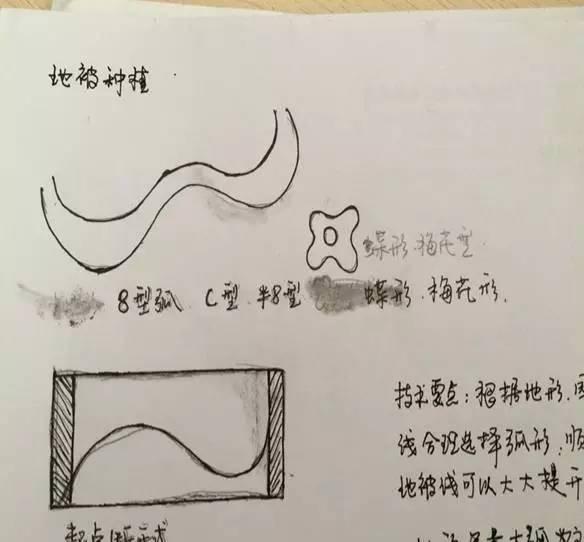 地被种植
蝶形.梅花型
8型弧、C型.半8型 蝶形.梅花形.
技术要点：根据地形.
线合理选择弧形.顺
地被线可以大大提升